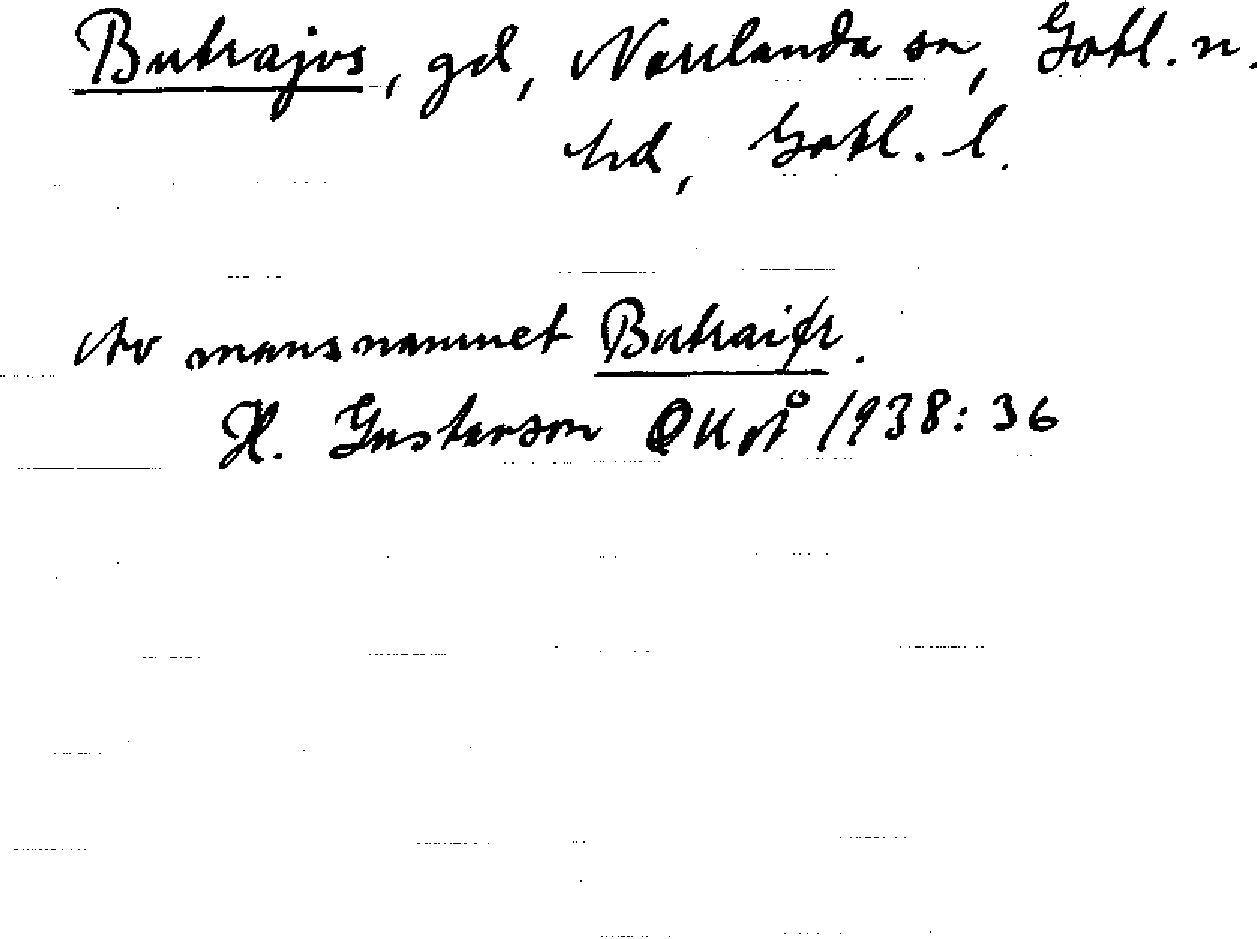 Butrajvs, gd, Norrlanda sn, Gotl. n.
hd, Gotl. l.
Av mansnamnet Butraifr.
H. Gustavson OUÅ 1938: 36